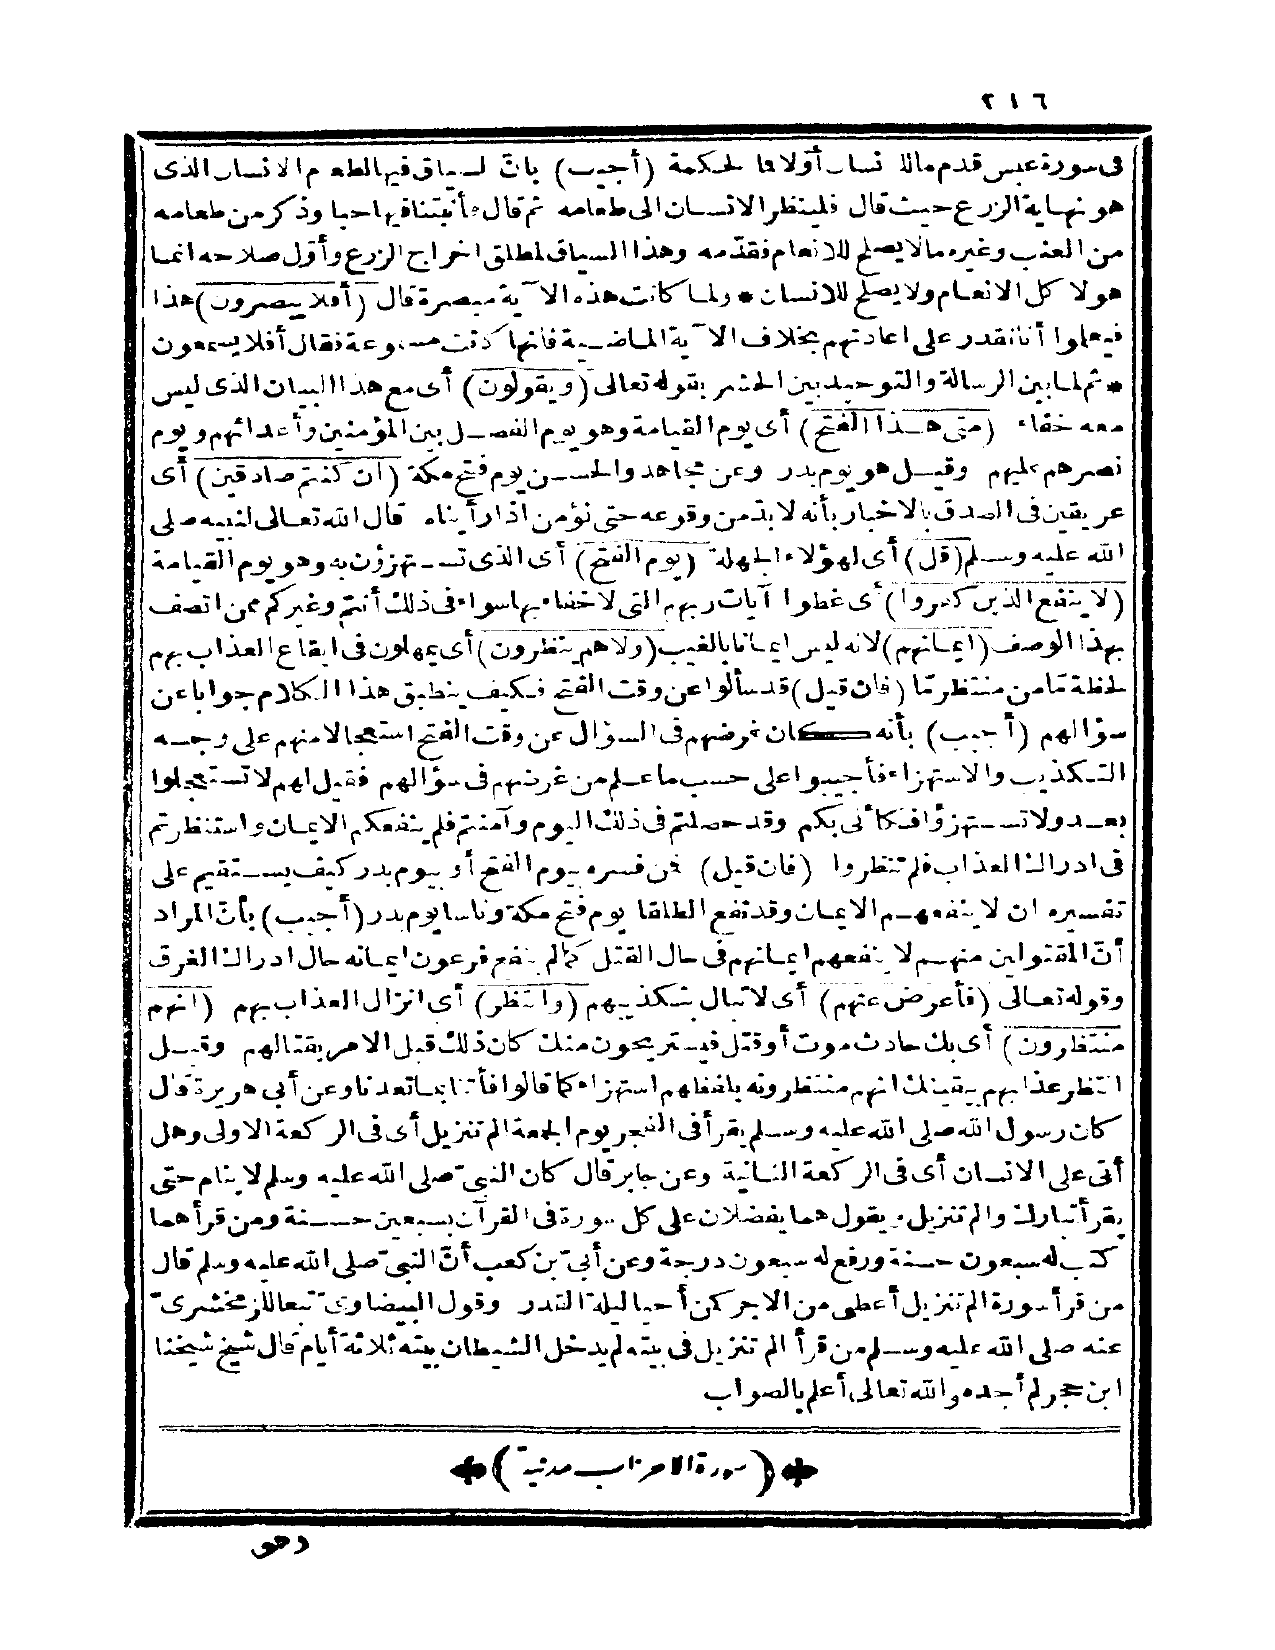 ٢١٦
فى سورة عبس قدم ماللانسان أولا فما الحكمة (أجيب) بأنّ السياق فيها لطعام الانسان الذى
هو نهاية الزرع حيث قال فلينظر الانسان الى طعامه ثم قال فأنبتنا فيها حبا وذكر من طعامه
من العنب وغيره مالا يصلح للانعام فقدّمه وهذا السياق لمطلق اخراج الزرع وأوّل صلاحه انما
هو لاكل الانعام ولا يصلح للانسان * ولما كانت هذه الآية مبصرة قال (أفلا يبصرون) هذا
فيعلموا أنا نقدر على اعادتهم بخلاف الآية الماضية فانها كانت مسموعة فقال أفلا يسمعون
* ثم لما بين الرسالة والتوحيد بين الحشر بقوله تعالى (ويقولون) أى مع هذا البيان الذى ليس
معه خفاء (متى هذا الفتح) أى يوم القيامة وهو يوم الفصل بين المؤمنين وأعدائهم ويوم
نصرهم عليهم وقيل هو يوم بدر وعن مجاهد والحسن يوم فتح مكة (ان كنتم صادقين) أى
عريقين فى الصدق بالاخبار بأنه لا بدّ من وقوعه حتى نؤمن اذا رأيناه قال الله تعالى لنبيه صلى
الله عليه وسلم (قل) أى لهؤلاء الجهلة (يوم الفتح) أى الذى تستهزؤن به وهو يوم القيامة
(لا ينفع الذين كفروا) أى غطوا آيات ربهم التى لا خفاء بها سواء فى ذلك أنتم وغيركم ممن اتصف
بهذا الوصف (ايمانهم) لانه ليس ايمانا بالغيب (ولا هم ينظرون) أى يمهلون فى ايقاع العذاب بهم
لحظة مّا من منتظر مّا (فان قيل) قد سألوا عن وقت الفتح فكيف ينطبق هذا الكلام جوابا عن
سؤالهم (أجيب) بأنه كان غرضهم فى السؤال عن وقت الفتح استعجالا منهم على وجه
التكذيب والاستهزاء فأجيبوا على حسب ما علم من غرضهم فى سؤالهم فقيل لهم لا تستعجلوا
بعد ولا تستهزؤا فكأنى بكم وقد حصلتم فى ذلك اليوم وآمنتم فلم ينفعكم الايمان واستنظرتم
فى ادراك العذاب فلم تنظروا (فان قيل) فمن فسره بيوم الفتح أو بيوم بدر كيف يستقيم على
تفسيره ان لا ينفعهم الايمان وقد نفع الطلقا يوم فتح مكة وناسا يوم بدر (أجيب) بأنّ المراد
أنّ المقتولين منهم لا ينفعهم ايمانهم فى حال القتل كما لم ينفع فرعون ايمانه حال ادراك الغرق
وقوله تعالى (فأعرض عنهم) أى لا تبال بتكذيبهم (وانتظر) أى انزال العذاب بهم (انهم
منتظرون) أى بك حادث موت أو قتل فيستريحون منك كان ذلك قبل الامر بقتالهم وقيل
انتظر عذابهم بيقينك انهم منتظرونه بلفظهم استهزاء كما قالوا فأتنا بما تعدنا وعن أبى هريرة قال
كان رسول الله صلى الله عليه وسلم يقرأ فى الفجر يوم الجمعة الم تنزيل أى فى الركعة الاولى وهل
أتى على الانسان أى فى الركعة الثانية وعن جابر قال كان النبىّ صلى الله عليه وسلم لا ينام حتى
يقرأ تبارك والم تنزيل ويقول هما يفضلان على كل سورة فى القرآن بسبعين حسنة ومن قرأهما
كتب له سبعون حسنة ورفع له سبعون درجة وعن أبىّ بن كعب أنّ النبىّ صلى الله عليه وسلم قال
من قرأ سورة الم تنزيل أعطى من الاجر كمن أحيا ليلة القدر وقول البيضاوىّ تبعا للزمخشرىّ
عنه صلى الله عليه وسلم من قرأ الم تنزيل فى بيته لم يدخل الشيطان بيته ثلاثة أيام قال شيخ شيخنا
ابن حجر لم أجده والله تعالى أعلم بالصواب
(سورة الاحزاب مدنية)
وهى